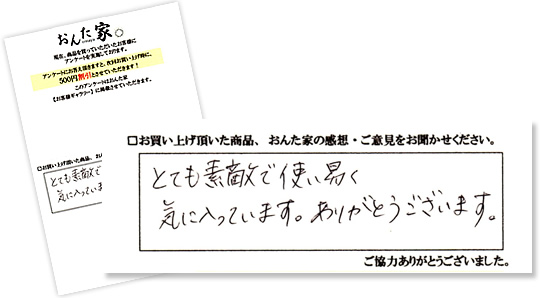 おんた家
現在、商品を買っていただいたお客様に
アンケートを実施しております。
アンケートにお答え頂きますと、次回お買い上げ時に、
500円割引とさせていただきます!
このアンケートはおんた家
【お客様ギャラリー】に掲載させていただきます。
□お買い上げ頂いた商品、おんた
とても素敵
気に入っていま
□お買い上げ頂いた商品、おんた家の感想・ご意見をお聞かせください。
とても素敵で使い易く
気に入っています。ありがとうございます。
ご協力ありがとうございました。